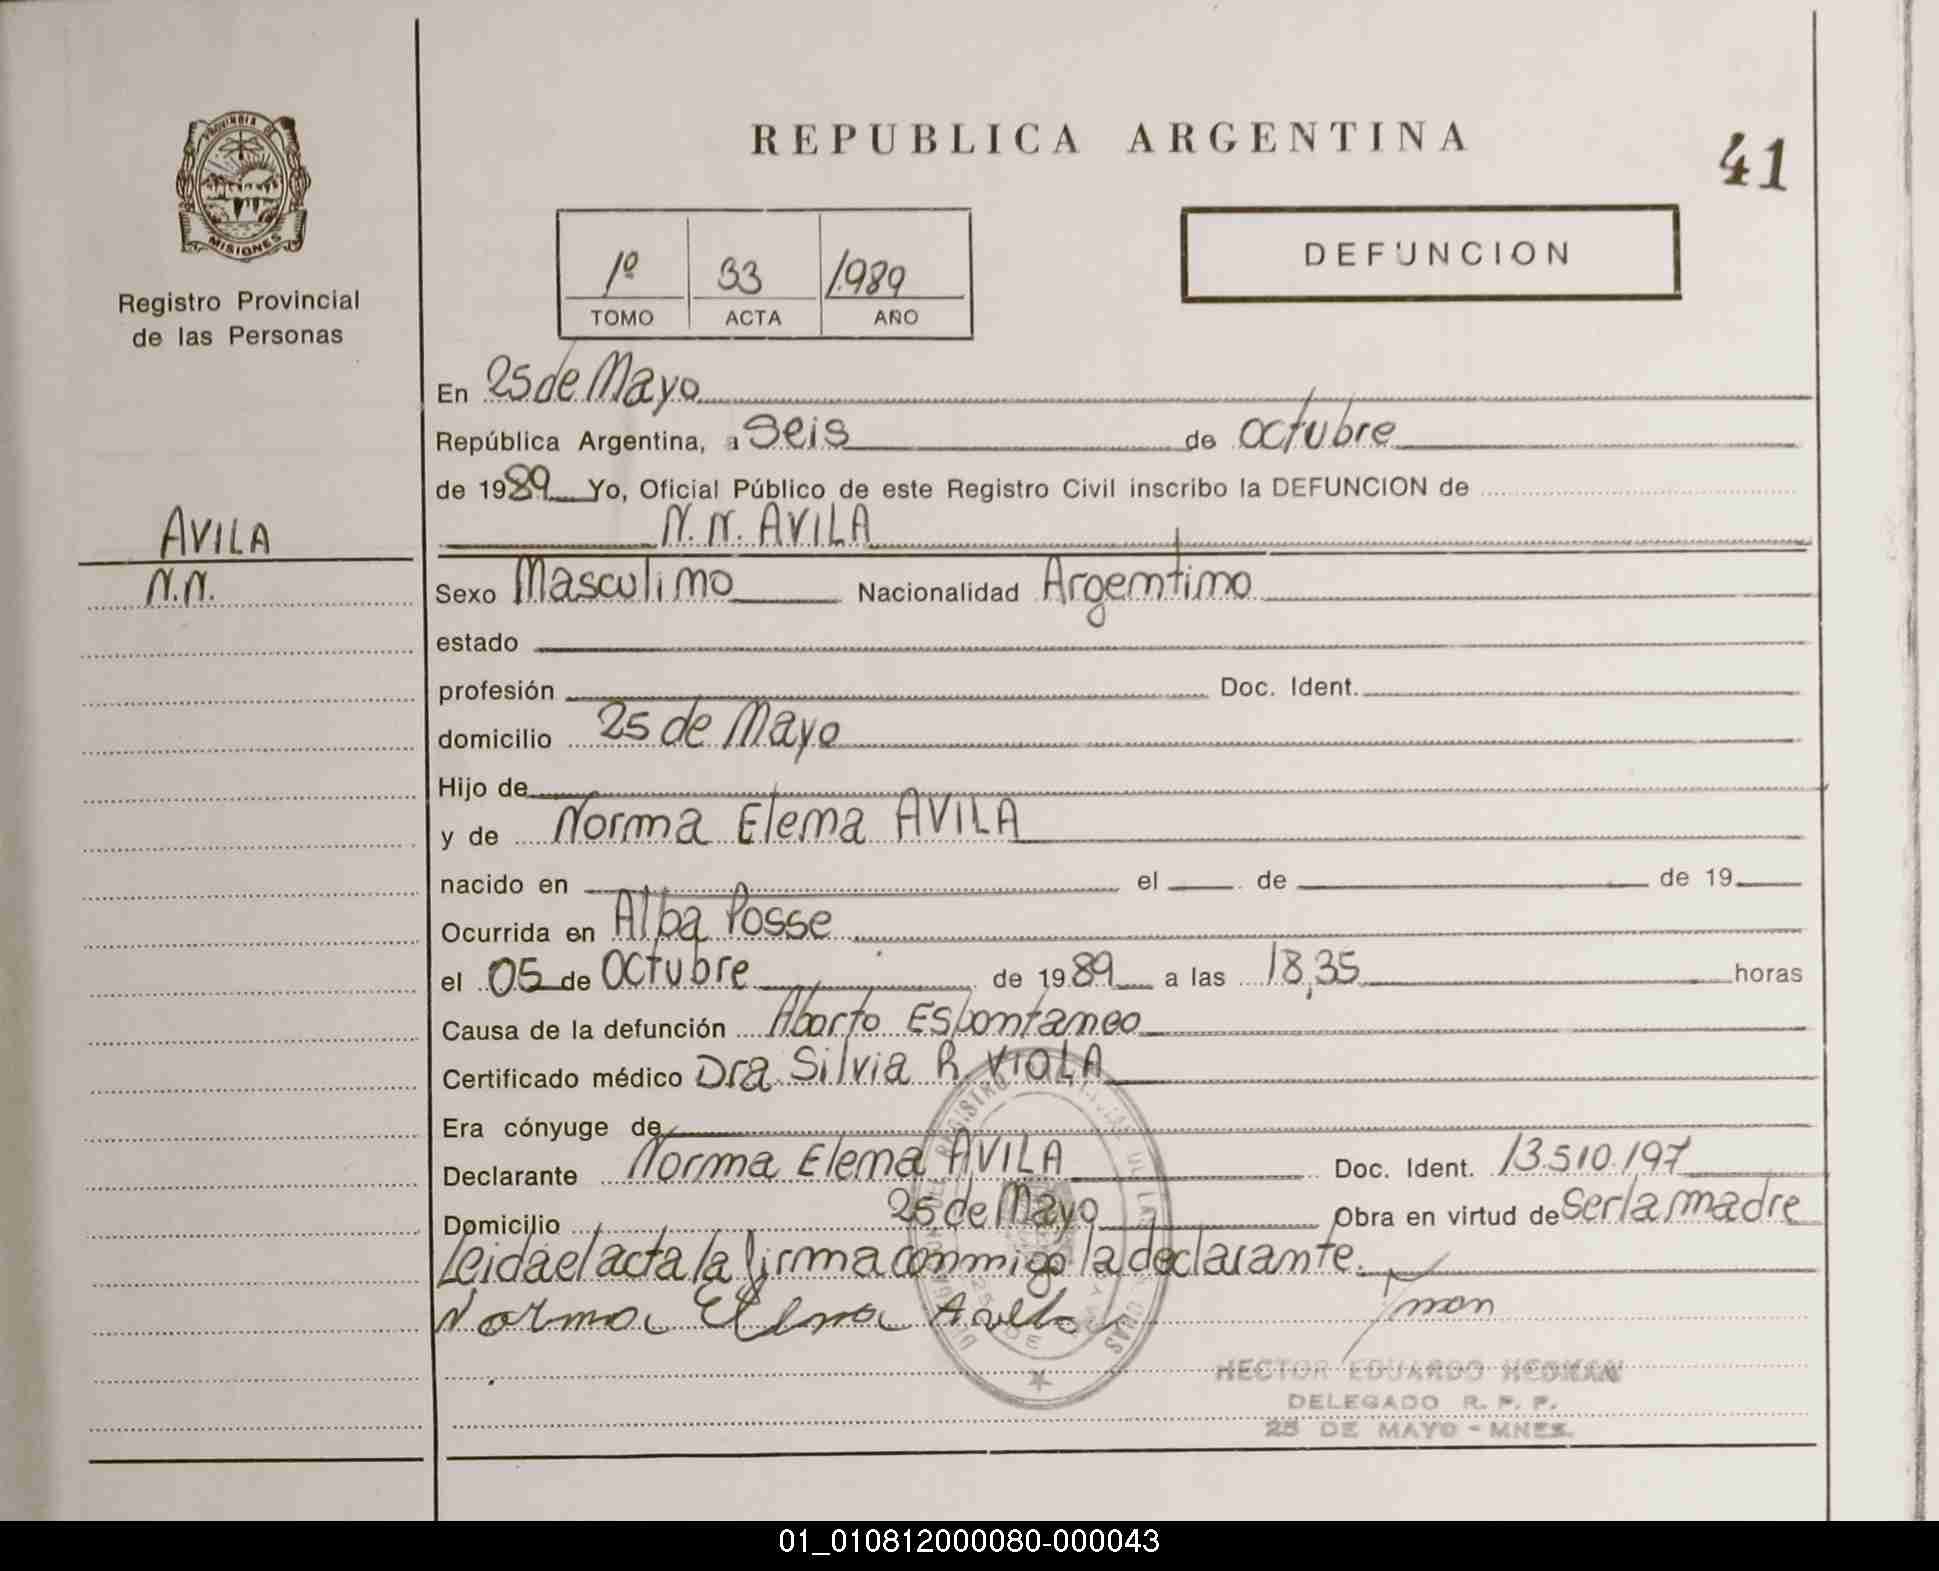 PROVINCIA DE
MISIONES
Registro Provincial
de las Personas
REPUBLICA ARGENTINA
41
1º 33 1.989
TOMO ACTA AÑO
DEFUNCION
En 25 de Mayo
República Argentina, a Seis de octubre
de 1989 Yo, Oficial Público de este Registro Civil inscribo la DEFUNCION de
AVILA
N.N. AVILA
N.N.
Sexo Masculino Nacionalidad Argentino
estado
profesión Doc. Ident.
domicilio 25 de Mayo
Hijo de
y de Norma Elema AVILA
nacido en el de de 19
Ocurrida en Alba Posse
el 05 de Octubre de 1989 a las 18,35 horas
Causa de la defunción Aborto Espontaneo
Certificado médico Dra. Silvia R. VIOLA
Era cónyuge de
Declarante Norma Elema AVILA Doc. Ident. 13.510.197
Domicilio 25 de Mayo Obra en virtud de Ser la madre
Leida el acta la firma conmigo la declarante.
Norma Elena Avila
HECTOR EDUARDO
DELEGADO R. P. P.
25 DE MAYO - MNES.
01_010812000080-000043